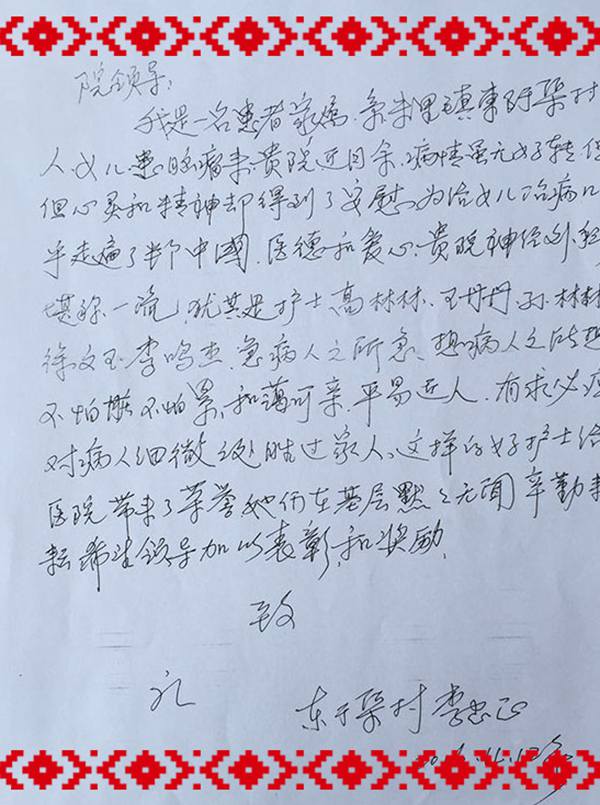 院领导：
我是一名患者家属，亲未里镇东于渠村
人，女儿患脑瘤来贵院近月余，病情虽无好转但
但心灵和精神却得到了安慰，为给女儿治病几
乎走遍了半个中國，医德和爱心，贵院神经外
堪称一流，犹其是护士高林林、王丹丹、孙林林
徐文玉、李鸣杰，急病人之所急，想病人之所想
不怕脏不怕累，和蔼可亲，平易近人，有求必应
对病人细微之处胜过家人，这样的好护士给
医院带来了荣誉她们在基层默々无闻辛勤耕
耘希望领导加以表彰，和奖励，
致
礼
东于渠村 李忠正